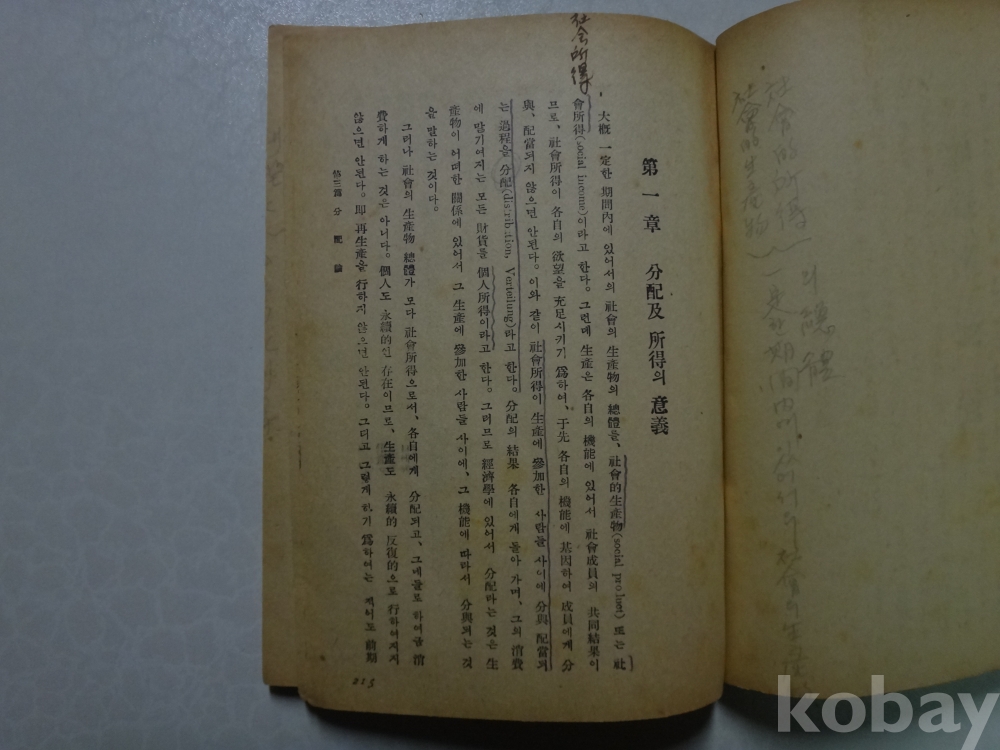 社会所得
第一章 分配及 所得의 意義
大概 一定한 期間內에 있어서의 社會의 生產物의 總體를, 社會的生產物(social product) 또는 社
會所得(social income)이라고 한다. 그런데 生產은 各自의 機能에 있어서 社會成員의 共同結果이
므로, 社會所得이 各自의 欲望을 充足시키기 爲하여, 于先 各自의 機能에 基因하여 成員에게 分
與、配當되지 않으면 안된다. 이와 같이 社會所得이 生產에 參加한 사람들 사이에 分與 配當되
는 過程을 分配(distribution, Verteilung)라고 한다. 分配의 結果 各自에게 돌아 가며, 그의 消費
에 맡기여지는 모든 財貨를 個人所得이라고 한다. 그러므로 經濟學에 있어서 分配라는 것은 生
產物이 어떠한 關係에 있어서 그 生產에 參加한 사람들 사이에、그 機能에 따라서 分與되는 것
을 말하는 것이다.
그러나 社會의 生產物 總體가 모다 社會所得으로서、各自에게 分配되고、그네들로 하여금 消
費하게 하는 것은 아니다. 個人도 永續的인 存在이므로、生產도 永續的 反復的으로 行하여지지
않으면 안된다. 即 再生產을 行하지 않으면 안된다. 그리고 그렇게 하기 爲하여는 적어도 前期
第三篇 分配論
215
社会的所得
社會的生產物
一定한 期間內에 있어서의 社會의 生產
의 總體
kobay